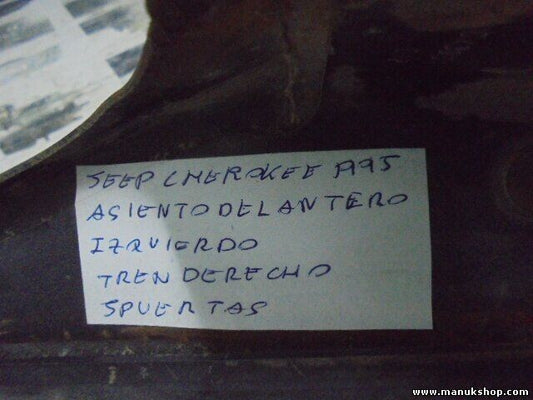 JEEP CHEROKEE 1995
ASIENTO DELANTERO
IZQUIERDO
TREN DERECHO
5PUERTAS
www.manukshop.com